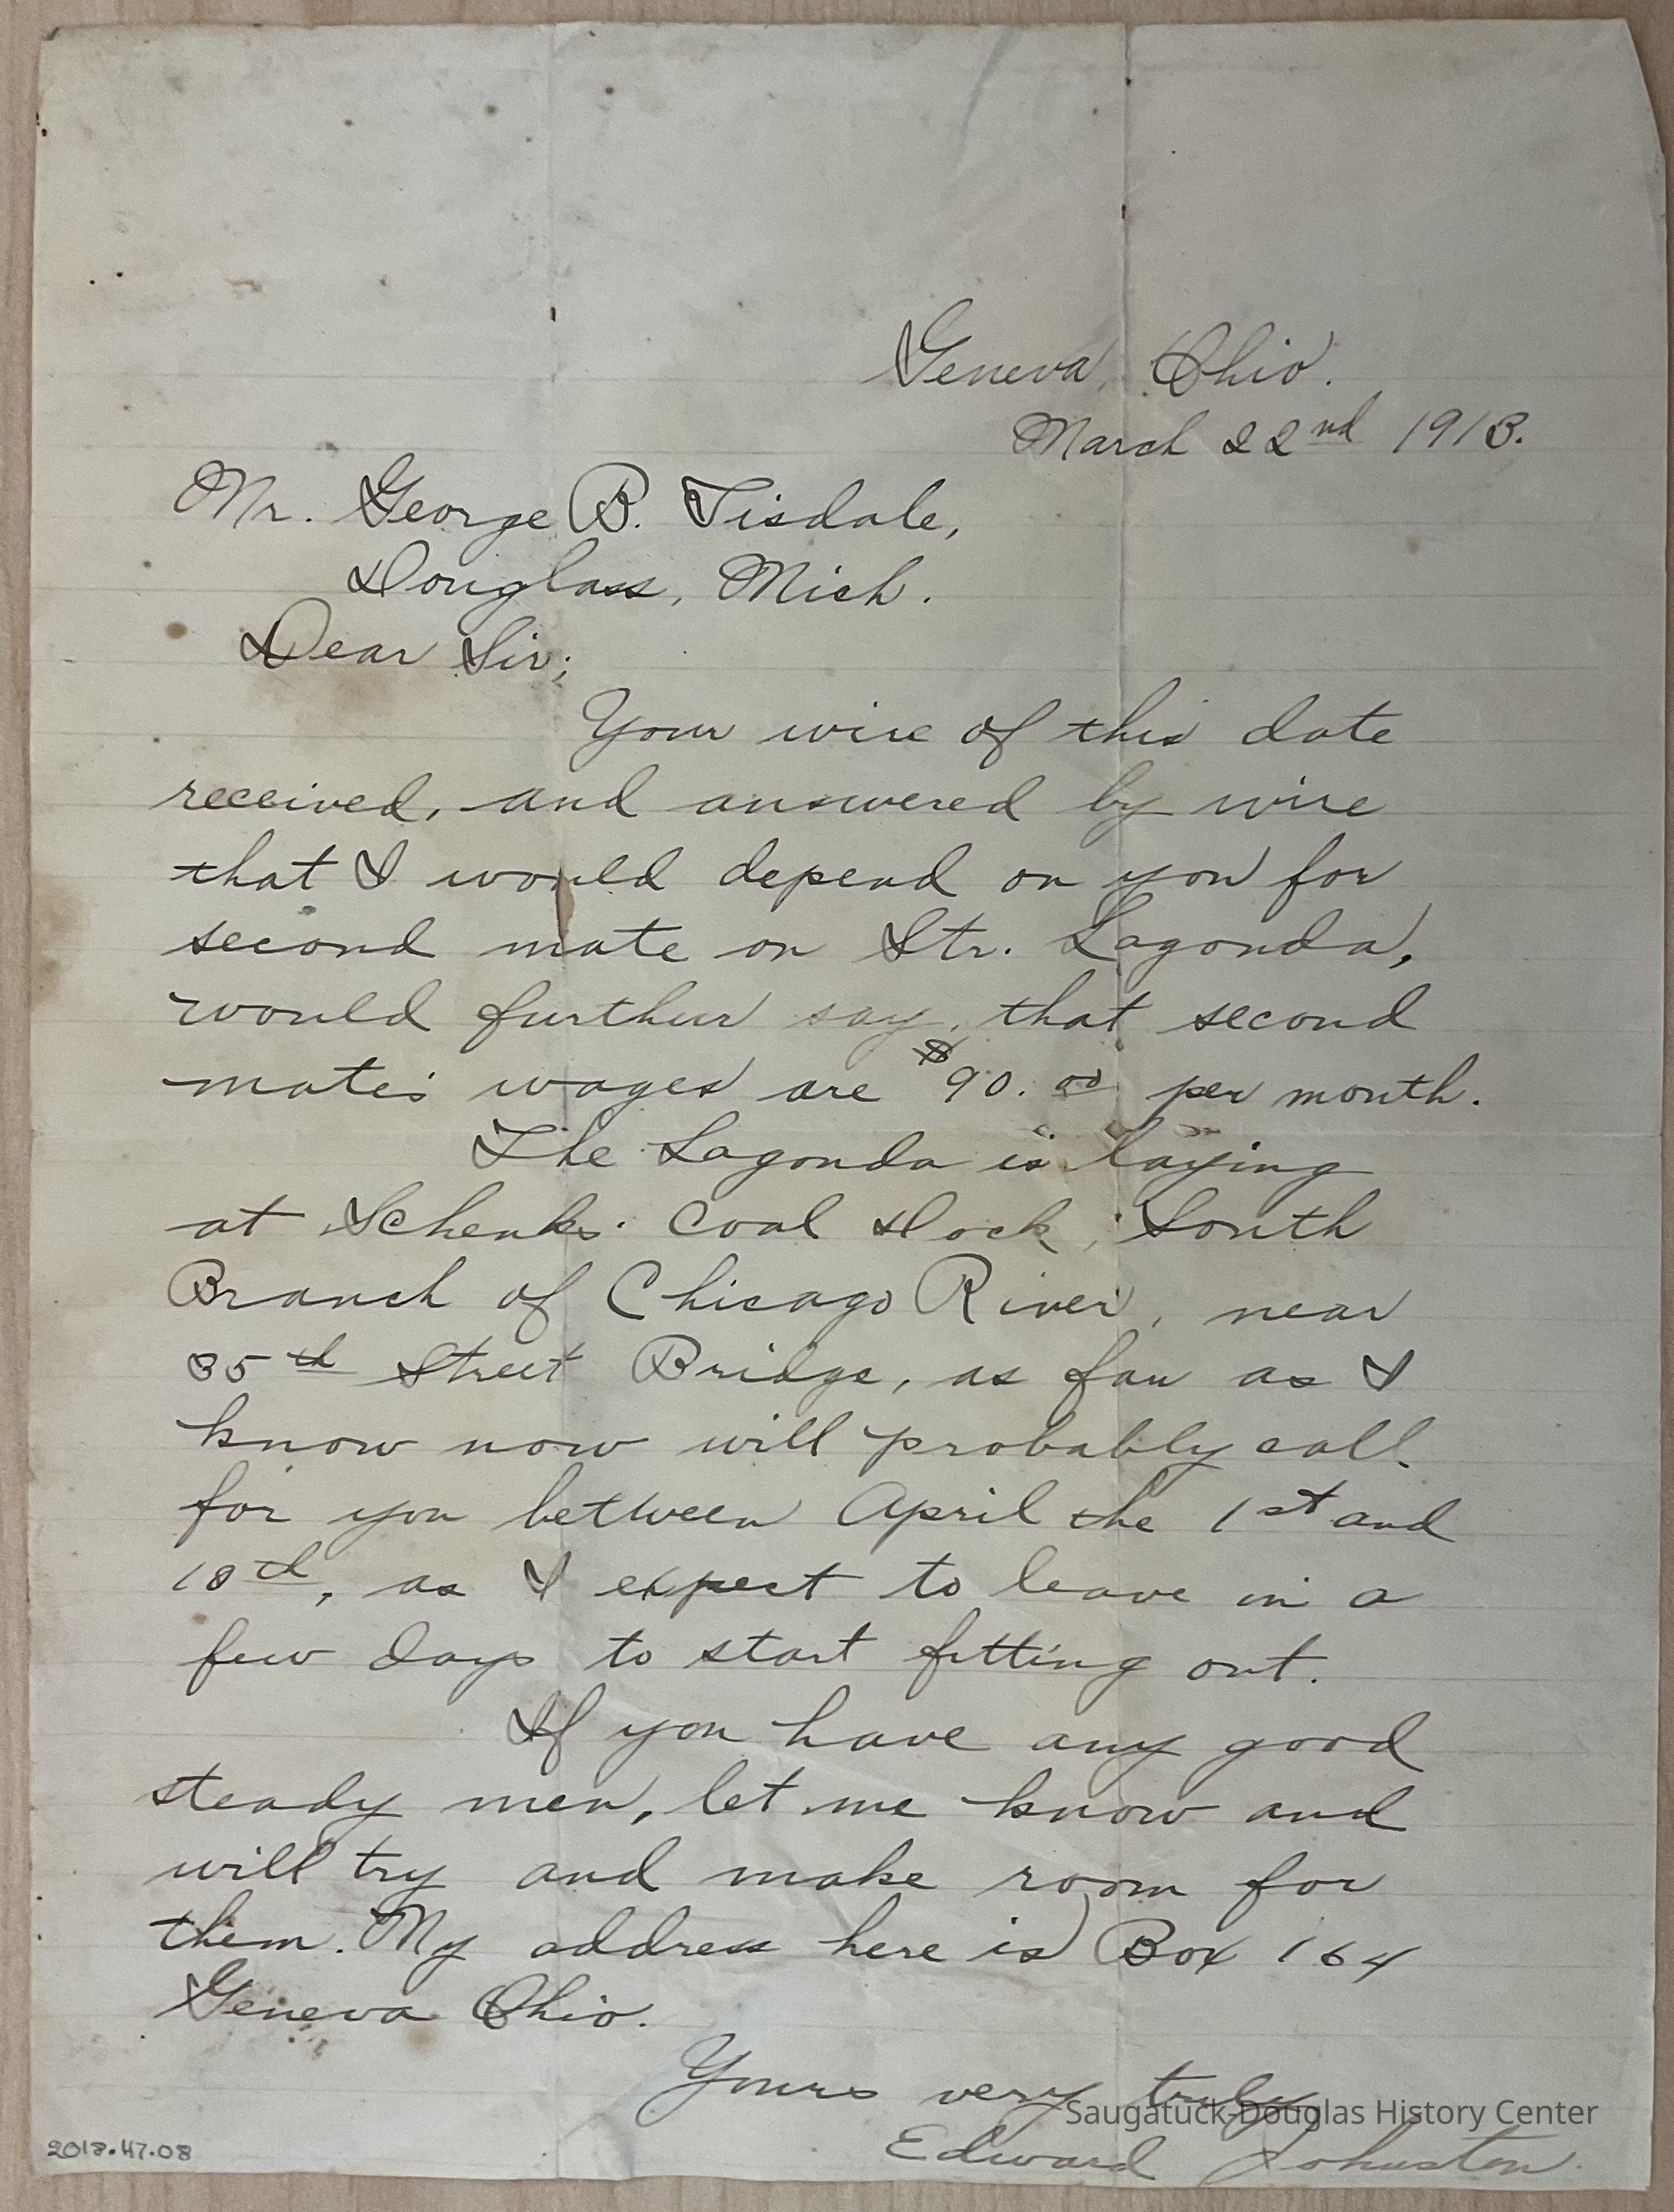 Geneva, Ohio.
March 22nd 1913.
Mr. George B. Tisdale,
Douglass, Mich.
Dear Sir;
Your wire of this date
received, and answered by wire
that I would depend on you for
second mate on Str. Lagonda,
would further say, that second
mate's wages are $90.00 per month.
The Lagonda is laying
at Schenks' Coal Dock, South
Branch of Chicago River, near
35th Street Bridge, as far as I
know now will probably call
for you between April the 1st and
10th, as I expect to leave in a
few days to start fitting out.
If you have any good
steady men, let me know and
will try and make room for
them. My address here is Box 164
Geneva Ohio.
Yours very truly
Saugatuck-Douglas History Center
Edward Johnston.
2018.47.08